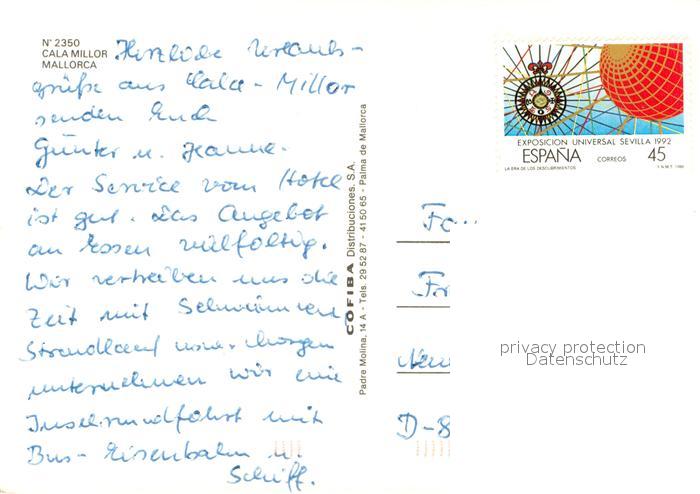 N° 2350
CALA MILLOR
MALLORCA
Herzliche Urlaubs-
grüße aus Cala-Millor
senden Euch
Günter u. Hanne.
Der Service vom Hotel
ist gut. Das Angebot
an Essen vielfältig.
Wir vertreiben uns die
Zeit mit Schwimmen
Strandlauf usw. Morgen
unternehmen wir eine
Inselrundfahrt mit
Bus- Eisenbahn u.
Schiff.
COFIBA Distribuciones, S.A.
Padre Molina, 14 A - Tels. 29 52 87 - 41 50 65 - Palma de Mallorca
EXPOSICION UNIVERSAL SEVILLA 1992
ESPAÑA CORREOS 45
LA ERA DE LOS DESCUBRIMIENTOS
Fa...
Fr
D-8
privacy protection
Datenschutz